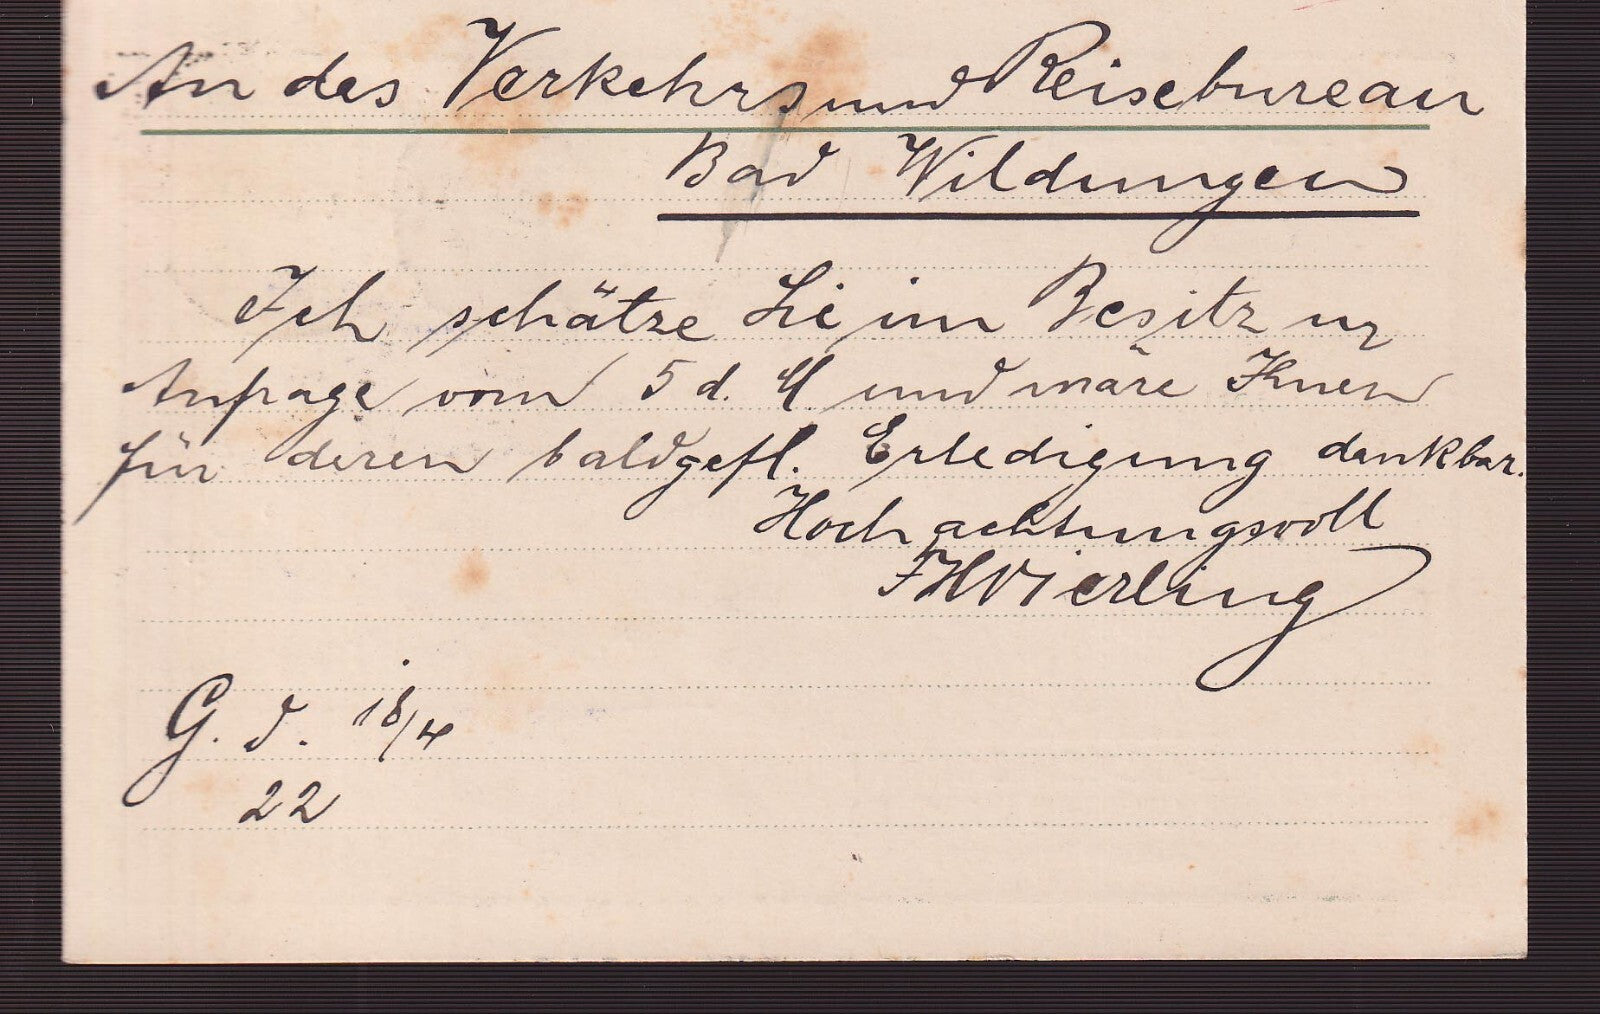 An das Verkehrs und Reisebureau
Bad Wildungen
Ich schätze Sie im Besitz m/
Anfrage vom 5 d. M und wäre Ihnen
für deren baldgefl. Erledigung dankbar.
Hochachtungsvoll
FHVierling
G. d. 18/4
22